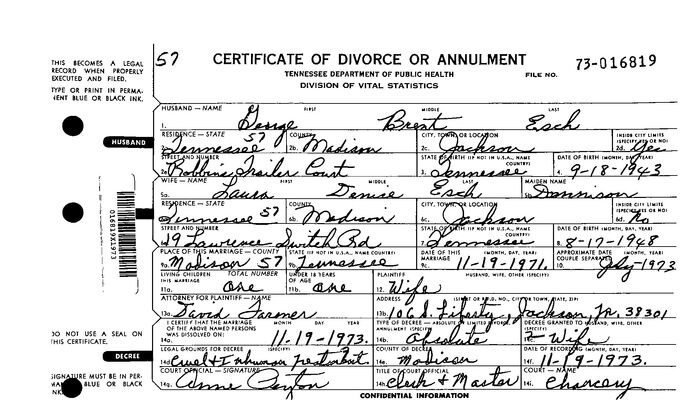 57 CERTIFICATE OF DIVORCE OR ANNULMENT
TENNESSEE DEPARTMENT OF PUBLIC HEALTH
DIVISION OF VITAL STATISTICS
FILE NO. 73-016819
THIS BECOMES A LEGAL
RECORD WHEN PROPERLY
EXECUTED AND FILED.
TYPE OR PRINT IN PERMA-
NENT BLUE OR BLACK
INK.
HUSBAND
HUSBAND — NAME FIRST MIDDLE LAST
1. George Brent Esch
RESIDENCE — STATE COUNTY CITY, TOWN, OR LOCATION INSIDE CITY LIMITS
(SPECIFY YES OR NO)
2a. Tennessee 57 2b. Madison 2c. Jackson 2d. Yes
STREET AND NUMBER STATE OF BIRTH (IF NOT IN U.S.A., NAME COUNTRY) DATE OF BIRTH (MONTH, DAY, YEAR)
2e. Robbins Trailer Court 3. Tennessee 4. 9-18-1943
WIFE — NAME FIRST MIDDLE LAST MAIDEN NAME
5a. Laura Denise Esch 5b. Dennison
RESIDENCE — STATE COUNTY CITY, TOWN, OR LOCATION INSIDE CITY LIMITS
(SPECIFY YES OR NO)
Tennessee 57 6b. Madison 6c. Jackson 6d. No
STREET AND NUMBER STATE OF BIRTH (IF NOT IN U.S.A., NAME COUNTRY) DATE OF BIRTH (MONTH, DAY, YEAR)
49 Lawrence Switch Rd Tennessee 8. 8-17-1948
PLACE OF THIS MARRIAGE — COUNTY STATE (IF NOT IN U.S.A., NAME COUNTRY) DATE OF THIS MARRIAGE (MONTH, DAY, YEAR) APPROXIMATE DATE COUPLE SEPARATED (MONTH, DAY, YEAR)
9a. Madison 57 9b. Tennessee 9c. 11-19-1971 10. July 1973
LIVING CHILDREN THIS MARRIAGE TOTAL NUMBER UNDER 18 YEARS OF AGE PLAINTIFF HUSBAND, WIFE, OTHER (SPECIFY)
11a. one 11b. one 12. Wife
ATTORNEY FOR PLAINTIFF — NAME ADDRESS (STREET OR R.F.D. NO., CITY OR TOWN, STATE, ZIP)
13a. David Farmer 13b. 106 S. Liberty, Jackson, Tn. 38301
I CERTIFY THAT THE MARRIAGE OF THE ABOVE NAMED PERSONS WAS DISSOLVED ON: MONTH DAY YEAR TYPE OF DECREE — ABSOLUTE OR LIMITED DIVORCE, ANNULMENT (SPECIFY) DECREE GRANTED TO HUSBAND, WIFE, OTHER (SPECIFY)
14a. 11-19-1973. 14b. Absolute Wife
DO NOT USE A SEAL ON
THIS CERTIFICATE.
DECREE
LEGAL GROUNDS FOR DECREE (SPECIFY) COUNTY OF DECREE DATE OF RECORDING (MONTH, DAY, YEAR)
14d. Cruel & Inhuman Treatment. Madison 11-19-1973.
SIGNATURE MUST BE IN PER-
BLUE OR BLACK
INK.
COURT OFFICIAL — SIGNATURE TITLE OF COURT OFFICIAL COURT — NAME
14g. Anne Penton 14h. Clerk & Master Chancery
CONFIDENTIAL INFORMATION